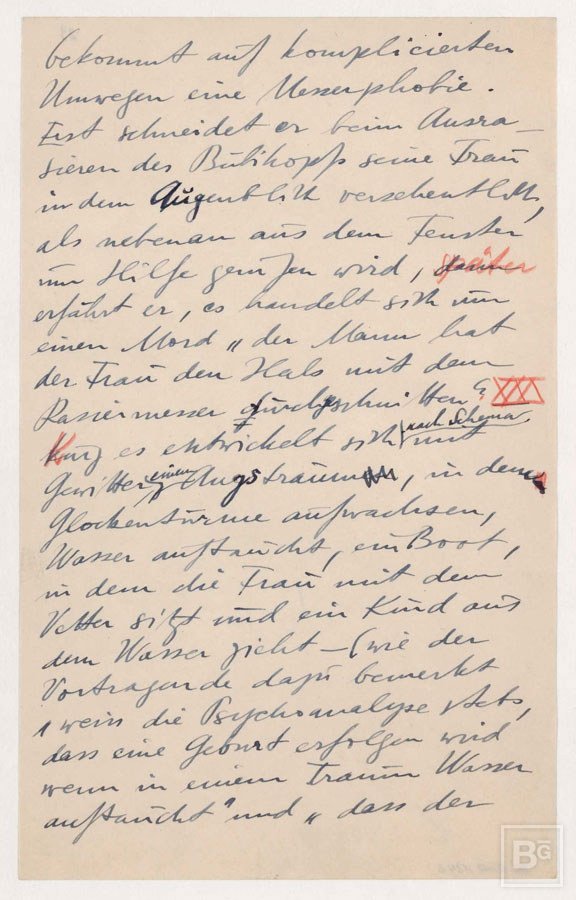 bekommt auf komplicierten
Umwegen eine Messerphobie.
Erst schneidet er beim Ausra-
sieren des Bubikopfs seine Frau
in dem Augenblick versehentlich,
als nebenan aus dem Fenster
um Hilfe gerufen wird, später
erfährt er, es handelt sich um
einen Mord „der Mann hat
der Frau den Hals mit dem
Rasiermesser durchschnitten"
Kurz es entwickelt sich nach Schema mit
Gewitter einen Angsttraum, in dem
Glockentürme aufwachsen,
Wasser auftaucht, ein Boot,
in dem die Frau mit dem
Vetter sitzt und ein Kind aus
dem Wasser zieht – (wie der
Vortragende dazu bemerkt
weiss die Psychoanalyse stets,
dass eine Geburt erfolgen wird
wenn in einem Traum Wasser
auftaucht" und „dass der
BG